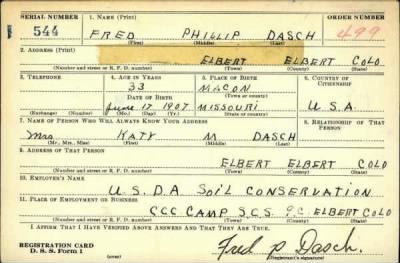 SERIAL NUMBER 1. NAME (Print) ORDER NUMBER
544 FRED PHILLIP DASCH 499
(First) (Middle) (Last)
2. ADDRESS (Print)
ELBERT ELBERT COLO
(Number and street or R. F. D. number) (Town) (County) (State)
3. TELEPHONE 4. AGE IN YEARS 5. PLACE OF BIRTH 6. COUNTRY OF CITIZENSHIP
33 MACON
DATE OF BIRTH (Town or county)
June 17 1907 MISSOURI U.S.A.
(Exchange) (Number) (Mo.) (Day) (Yr.) (State or country)
7. NAME OF PERSON WHO WILL ALWAYS KNOW YOUR ADDRESS 8. RELATIONSHIP OF THAT PERSON
Mrs KATY M DASCH
(Mr., Mrs., Miss) (First) (Middle) (Last)
9. ADDRESS OF THAT PERSON
ELBERT ELBERT COLO
(Number and street or R. F. D. number) (Town) (County) (State)
10. EMPLOYER'S NAME
U.S.D.A Soil CONSERVATION
11. PLACE OF EMPLOYMENT OR BUSINESS
CCC CAMP S.C.S. ELBERT COLO
(Number and street or R. F. D. number) (Town) (County) (State)
I AFFIRM THAT I HAVE VERIFIED ABOVE ANSWERS AND THAT THEY ARE TRUE.
REGISTRATION CARD
D. S. S. Form 1
Fred P. Dasch.
(Registrant's signature)